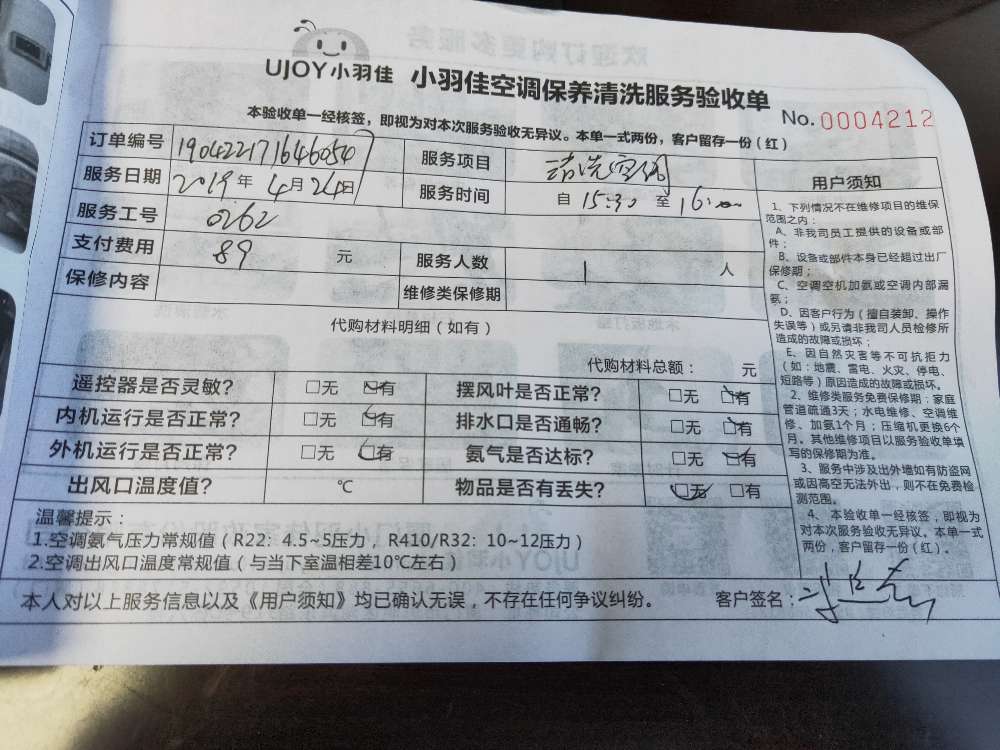 UJOY小羽佳 小羽佳空调保养清洗服务验收单
本验收单一经核签，即视为对本次服务验收无异议。本单一式两份，客户留存一份（红）
No. 0004212
订单编号 190422171646054 服务项目 清洗空调
服务日期 2019年4月24日 服务时间 自 15:30 至 16:00
服务工号 0262
支付费用 89 元 服务人数 1 人
保修内容 维修类保修期
代购材料明细（如有）
代购材料总额： 元
遥控器是否灵敏？ □无 □有 摆风叶是否正常？ □无 □有
内机运行是否正常？ □无 □有 排水口是否通畅？ □无 □有
外机运行是否正常？ □无 □有 氨气是否达标？ □无 □有
出风口温度值？ ℃ 物品是否有丢失？ □无 □有
温馨提示：
1.空调氨气压力常规值（R22：4.5~5压力，R410/R32：10~12压力）
2.空调出风口温度常规值（与当下室温相差10℃左右）
本人对以上服务信息以及《用户须知》均已确认无误，不存在任何争议纠纷。 客户签名：
用户须知
1、下列情况不在维修项目的维保
范围之内：
A、非我司员工提供的设备或部
件；
B、设备或部件本身已经超过出厂
保修期；
C、空调空机加氨或空调内部漏
氨；
D、因客户行为（擅自装卸、操作
失误等）或另请非我司人员检修所
造成的故障或损坏；
E、因自然灾害等不可抗拒力
（如：地震、雷电、火灾、停电、
短路等）原因造成的故障或损坏。
2、维修类服务免费保修期：家庭
管道疏通3天；水电维修、空调维
修、加氨1个月；压缩机更换6个
月。其他维修项目以服务验收单填
写的保修期为准。
3、服务中涉及出外墙如有防盗网
或因高空无法外出，则不在免费检
测范围。
4、本验收单一经核签，即视为
对本次服务验收无异议。本单一式
两份，客户留存一份（红）。